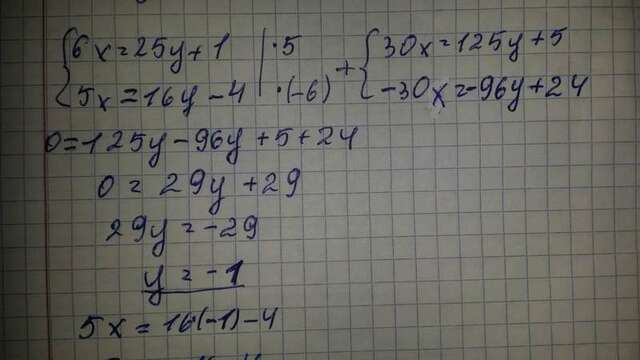 {6x=25y+1 | ·5 + {30x=125y+5
{5x=16y-4 | ·(-6) {-30x=-96y+24
0=125y-96y+5+24
0=29y+29
29y=-29
y=-1
5x=16·(-1)-4